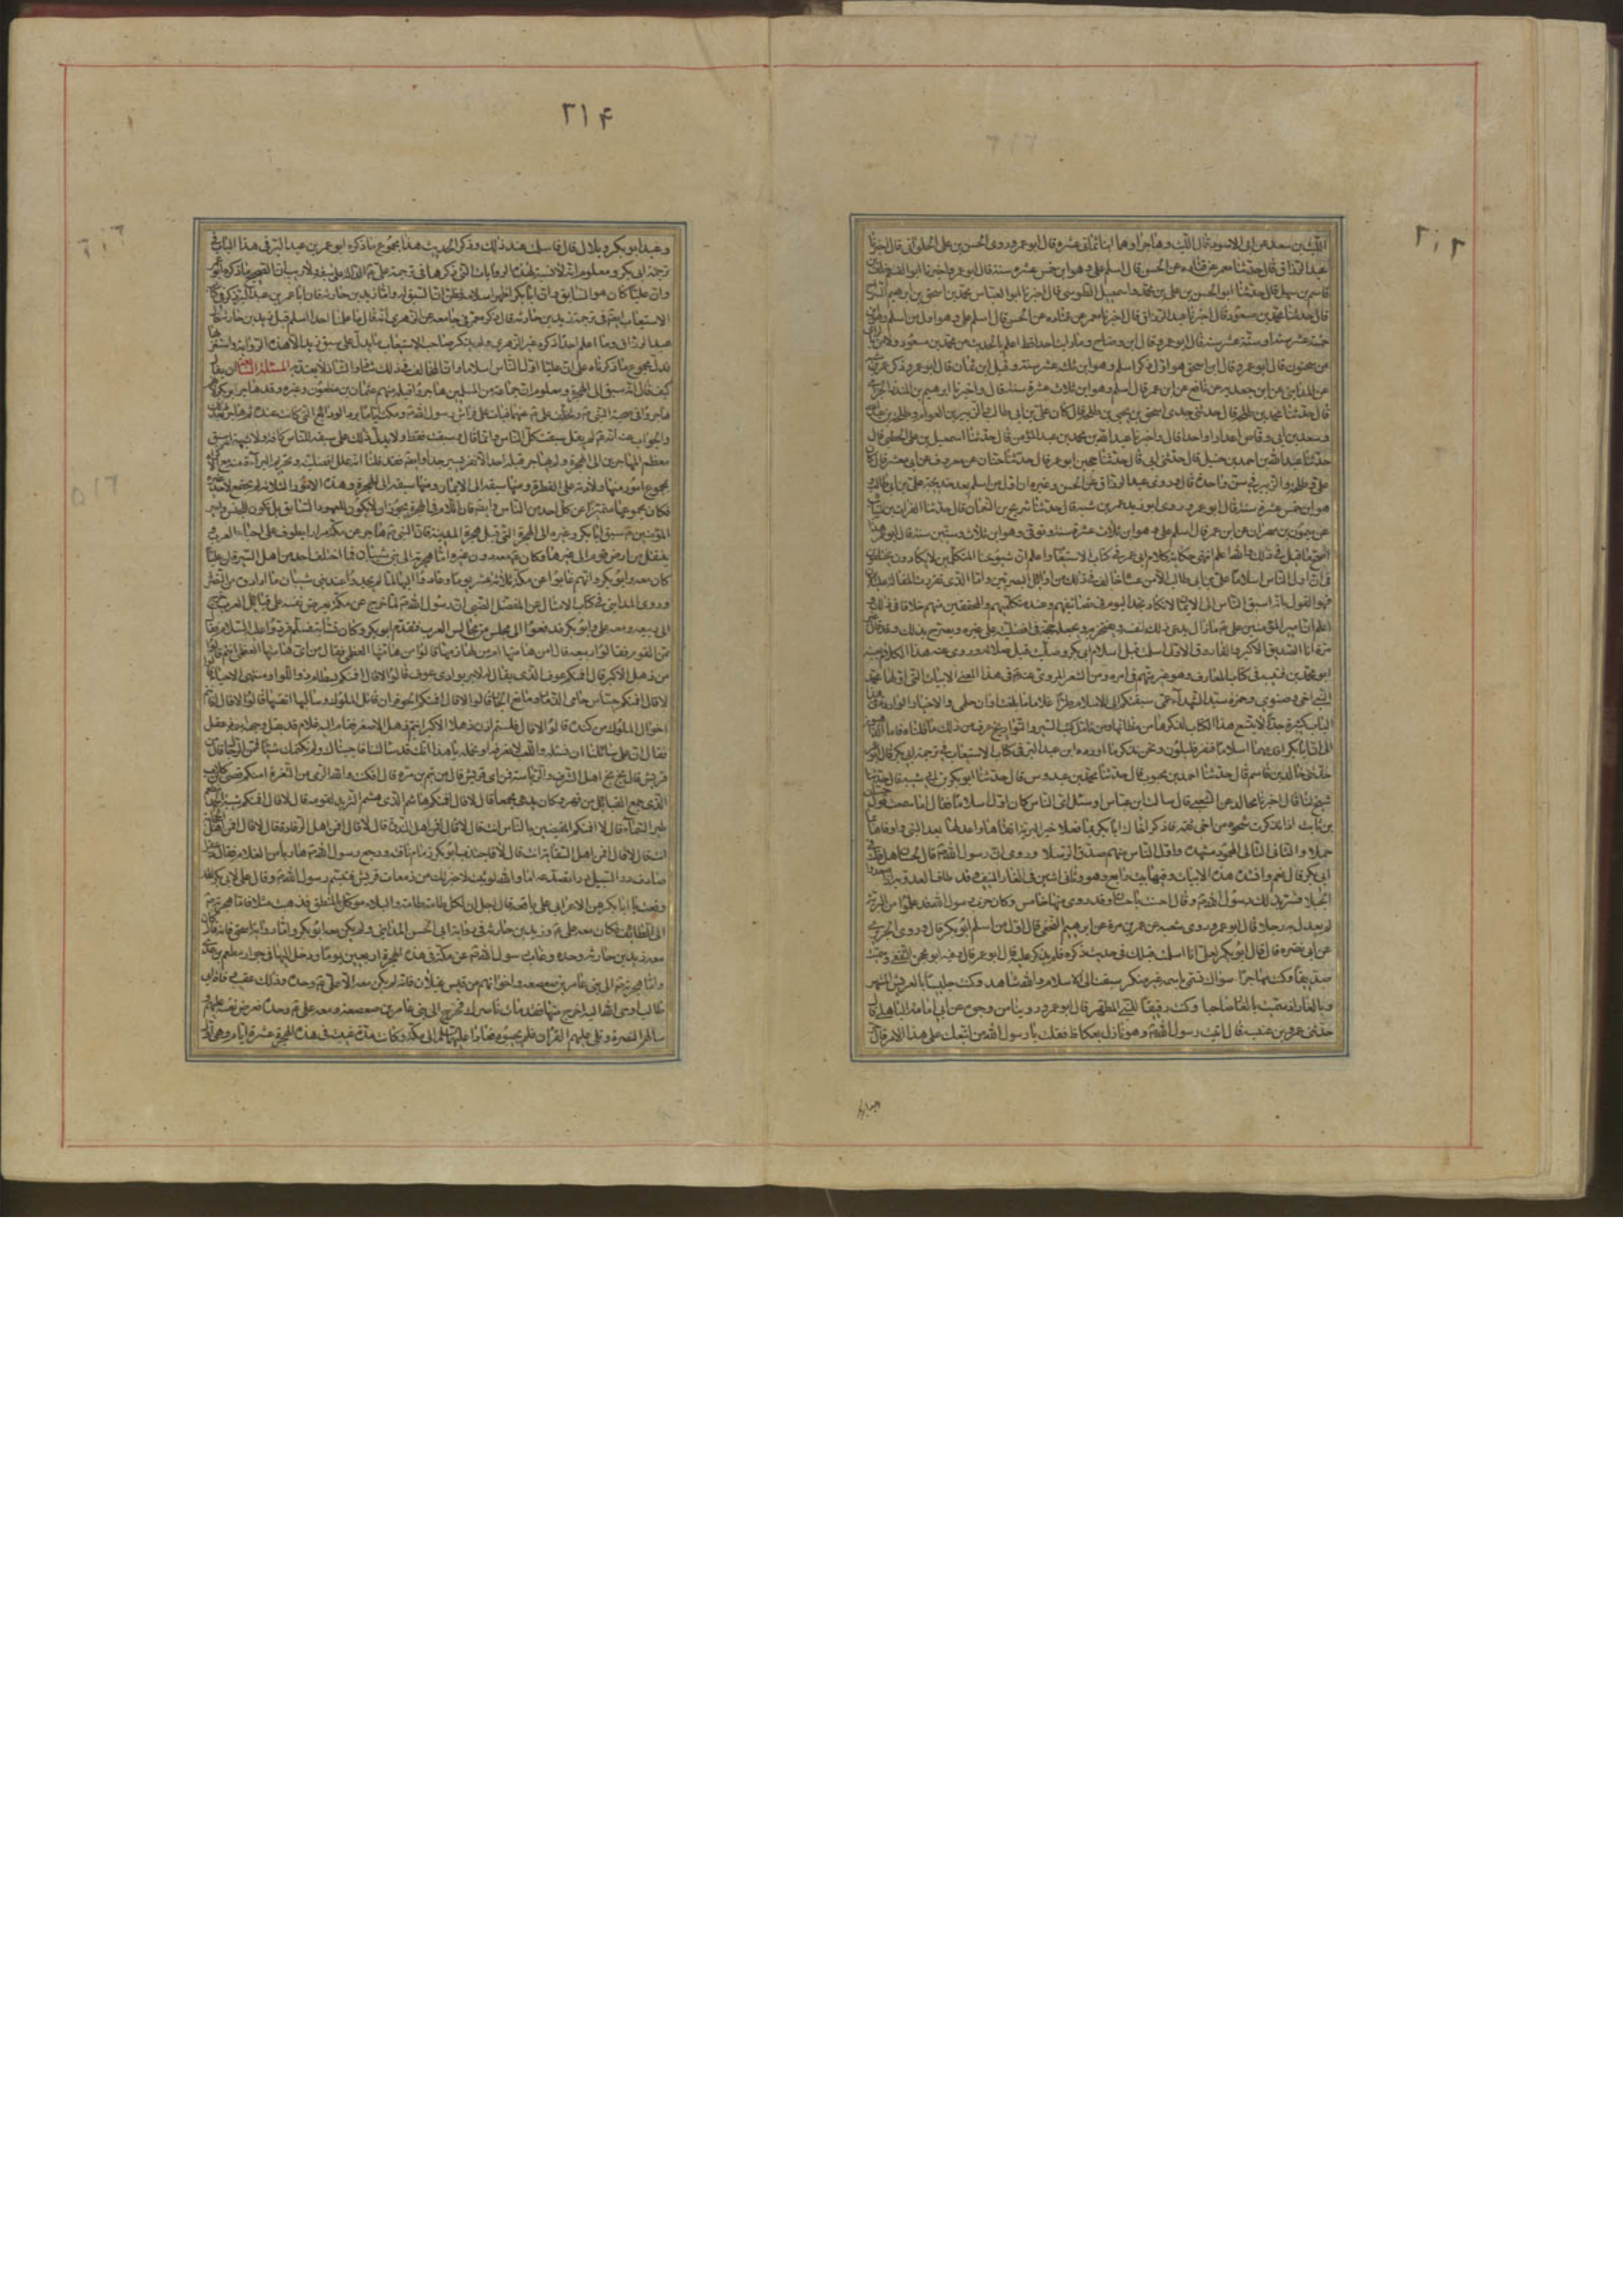 ٢١٣
الليث بن سعد عن ابى الاسود قال الليث وهاجرا وهما ابنا ثمانى عشره قال ابو عمر وروى الحسن بن على الحلوانى قال اخبرنا
عبد الرزاق قال حدثنا معمر عن قتاده عن الحسن قال اسلم على وهو ابن خمس عشره سنة قال ابو عمر واخبرنا ابو القسم خلف بن
قاسم بن سهل قال حدثنا ابو الحسن بن على بن محمد بن اسمعيل الطوسى قال اخبرنا ابو العباس محمد بن اسحق بن ابرهيم السراج
قال حدثنا محمد بن مسعود قال اخبرنا عبد الرزاق قال اخبرنا معمر عن قتاده عن الحسن قال اسلم على وهو اول من اسلم وهو ابن
خمسة عشر سنة او ستة عشر سنة قال ابو عمر قال ابن وضاح وما رايت احدا قط اعلم بالحديث من محمد بن مسعود ولا من
سحنون قال ابو عمر قال ابن اسحق هو اول ذكر اسلم وهو ابن ثلث عشر سنة وقيل ابن ثمان قال ابو عمر وذكر عمر بن
قال حدثنا محمد بن طلحة قال حدثنى جدى اسحق بن يحيى بن طلحة قال كان على بن ابى طالب والزبير بن العوام وطلحة بن
وسعد بن ابى وقاص اعدادا واحدا قال واخبرنا عبد الله بن محمد بن عبد المؤمن قال حدثنا اسمعيل بن على الخطبى قال
حدثنا عبد الله بن احمد بن حنبل قال حدثنى ابى قال حدثنا حجين ابو عمر قال حدثنا حبان عن معروف عن ابى معشر قال كان
على وطلحة والزبير فى سن واحدة قال وروى عبد الرزاق عن الحسن وغيره ان اول من اسلم بعد خديجة على بن ابى طالب
هو ابن خمس عشرة سنة قال ابو عمر وروى ابو زيد عمر بن شبه قال حدثنا شريح بن النعمان قال حدثنا الفرات بن
عن ميمون بن مهران عن ابن عمر قال اسلم على وهو ابن ثلاث عشرة سنة وتوفى وهو ابن ثلاث وستين سنة قال ابو عمر هذا
اصح ما قيل فى ذلك والله اعلم انتهى حكاية كلام ابى عمر فى كتاب الاستيعاب واعلم ان شيوخنا المتكلمين لا يكادون يختلفون
فى ان اول الناس اسلاما على بن ابى طالب الا من عساه خالف فى ذلك من اوائل البصريين واما الذى تقررت المقالة عليه الان
فهو القول بانه اسبق الناس الى الايمان لا تكاد تجد اليوم فى تصانيفهم وعند متكلميهم والمحققين منهم خلافا فى ذلك و
اعلم ان امير المؤمنين على ما زال يدعى ذلك لنفسه ويفتخر به ويجعله حجة فى افضليته على غيره ويصرح بذلك وقد قال
انا الصديق الاكبر والفاروق الاول اسلمت قبل اسلام ابى بكر وصليت قبل صلاته وروى عنه هذا الكلام
ابو محمد بن قتيبه فى كتاب المعارف وهو غير متهم فى امره ومن الشعر المروى عنه فى هذا المعنى الابيات التى اولها محمد
النبى اخى وصنوى وحمزه سيد الشهدآء عمى سبقتكم الى الاسلام طرّا غلاما ما بلغت اوان حلمى والاخبار الواردة فى هذا
الباب كثيرة جدا لا يتسع هذا الكتاب لذكرها من مظانها ومن تامل كتب السير والتواريخ عرف من ذلك ما قلناه فاما
الى ان ابا بكر اقدمهما اسلاما فنفر قليلون ونحن نذكر ما اورده ابن عبد البر فى كتاب الاستيعاب فى ترجمة ابى بكر قال
حدثنى خالد بن قاسم قال حدثنا احمد بن محبوب قال حدثنا محمد بن عبدوس قال حدثنا ابو بكر بن ابى شيبه قال حدثنا
شيخ لنا قال اخبرنا مجالد عن الشعبى قال سالت ابن عباس او سئل اى الناس كان اول اسلاما فقال اما سمعت قول حسان
بن ثابت اذا تذكرت شجوا من اخى ثقة فاذكر اخاك ابا بكر بما فعلا خير البرية اتقاها واعدلها بعد النبى واوفاها بما
حملا والثانى التالى المحمود مشهده واول الناس منهم صدّق الرسلا وروى ان رسول الله قال لحسان هل قلت فى
ابى بكر قال نعم وانشده هذه الابيات وفيها بيت رابع وهو وثانى اثنين فى الغار المنيف وقد طاف العدو به
الجبلا فسر بذلك رسول الله وقال احسنت يا حسان وقد روى فيها خامس وكان حب رسول الله قد علموا من البرية
لم يعدل به رجلا قال ابو عمر وروى شعبه عن عمرو بن مره عن ابرهيم النخعى قال اول من اسلم ابو بكر قال وروى الجريرى
عن ابى نضره قال قال ابو بكر لعلى انا اسلمت قبلك فى حديث ذكره فلم ينكر عليه قال ابو عمر قال فيه ابو محجن الثقفى وسميت
صديقا وكل مهاجر سواك تسمى باسمه غير منكر سبقت الى الاسلام والله شاهد وكنت جليسا بالعريش المشهر
وبالغار اذ سميت بالغار صاحبا وكنت رفيقا للنبى المطهر قال ابو عمر وروينا من وجوه عن ابى امامة الباهلى قال
حدثنى عمرو بن عنبسه قال اتيت رسول الله وهو نازل بعكاظ فقلت يا رسول الله من اتبعك على هذا الامر قال
٢١۴
وعبد ابو بكر وبلال قال فاسلمت عند ذلك وذكر الحديث هذا مجموع ما ذكره ابو عمر بن عبد البر فى هذا الباب فى
ترجمة ابى بكر ومعلوم انه لا نسبة لهذه الروايات الى الروايات التى ذكرها فى ترجمة على الدالة على سبقه ولا ريب ان الصحيح ما ذكره ابو عمر
وان عليا كان هو السابق وان ابا بكر اظهر اسلامه فظن ان السبق له واما زيد بن حارثه فان ابا عمر بن عبد البر ذكر فى كتاب
الاستيعاب ايضا فى ترجمة زيد بن حارثه قال ذكر معمر فى جامعه عن الزهرى انه قال ما علمنا احدا اسلم قبل زيد بن حارثه قال
عبد الرزاق وما اعلم احدا ذكره غير الزهرى ولم يذكر صاحب الاستيعاب ما يدل على سبق زيد الا هذه الرواية واستغربها
فدل مجموع ما ذكرناه على ان عليا اول الناس اسلاما وان المخالف فى ذلك شاذ والشاذ لا يعتد به المسئلة ان يقال
كيف قال انه سبق الى الهجرة ومعلوم ان جماعة من المسلمين هاجروا قبله منهم عثمان بن مظعون وغيره وقد هاجر ابو بكر
والجواب انه لم يقل سبقت كل الناس وانما قال سبقت فقط ولا يدل ذلك على سبقه للناس كافة ولا شبهة انه سبق
معظم المهاجرين الى الهجرة ولم يهاجر قبله احد الا نفر يسير جدا وايضا فقد قلنا انه علل افضليته وتحريم البرآءة منه
بمجموع امور منها ولادته على الفطرة ومنها سبقه الى الايمان ومنها سبقه الى الهجرة وهذه الامور الثلاثة لم تجتمع لاحد غيره
فكان بمجموعها متميزا عن كل احد من الناس وايضا فان اللام فى الهجرة يجوز ان لا يكون للمعهود السابق بل تكون للجنس وامير
المؤمنين سبق ابا بكر وغيره الى الهجرة التى قبل هجرة المدينة فان النبى هاجر عن مكة مرارا يطوف على احياء العرب و
ينتقل من ارض قوم الى غيرها وكان على معه دون غيره اما هجرته الى بنى شيبان فما اختلف احد من اهل السيرة ان عليا
كان معه وابو بكر وانهم غابوا عن مكة ثلاثة عشر يوما وعادوا اليها لما لم يجدوا عند بنى شيبان ما ارادوه من النصرة
وروى المداينى فى كتاب الامثال عن المفضل الضبى ان رسول الله لما خرج عن مكة يعرض نفسه على قبايل العرب خرج
الى ربيعه ومعه على وابو بكر فدفعوا الى مجلس من مجالس العرب فتقدم ابو بكر وكان نسابة فسلم فردوا عليه السلام فقال
ممن القوم فقالوا من ربيعه قال امن هامتها ام من لهازمها قالوا من هامتها العظمى فقال من اى هامتها العظمى انتم قالوا
من ذهل الاكبر قال افمنكم عوف الذى يقال له لا حر بوادى عوف قالوا لا قال افمنكم بسطام ذو اللواء ومنتهى الاحياء قالوا
لا قال افمنكم جساس حامى الذمار ومانع الجار قالوا لا قال افمنكم الحوفزان قاتل الملوك وسالبها انفسها قالوا لا قال افانتم
اخوال الملوك من كنده قالوا لا قال فلستم اذن ذهلا الاكبر انتم ذهل الاصغر فقام اليه غلام قد بقل وجهه اسمه دغفل
فقال ان على سائلنا ان نسئله والعبء لا تعرفه او تحمله يا هذا انك قد سالتنا فاجبناك ولم نكتمك شيئا فممن الرجل قال من
قريش قال بخ بخ اهل الشرف والرياسة فمن اى قريش قال من تيم بن مره قال امكنت والله الرامى من الثغرة امنكم قصى بن كلاب
الذى جمع القبائل من فهر وكان يدعى مجمعا قال لا قال افمنكم هاشم الذى هشم الثريد لقومه قال لا قال افمنكم شيبة الحمد مطعم
طير السماء قال لا افمن المفيضين بالناس انت قال لا قال افمن اهل الندوة قال لا قال افمن اهل الرفادة قال لا قال افمن اهل
انت قال لا قال افمن اهل السقاية انت قال لا فاجتذب ابو بكر زمام ناقته ورجع رسول الله هاربا من الغلام فقال دغفل
صادف درء السيل درء يصدعه اما والله لو ثبت لاخبرتك انك من زمعات قريش فتبسم رسول الله وقال على لابى بكر لقد
وقعت يا ابا بكر من الاعرابى على باقعة قال اجل ان لكل طامة طامة والبلاء موكل بالمنطق فذهبت مثلا فاما هجرته
الى الطائف فكان معه على وزيد بن حارثه فى رواية ابى الحسن المداينى ولم يكن معه ابو بكر واما رواية محمد بن اسحق فانه قال كان
معه زيد بن حارثه وحده وغاب رسول الله عن مكة فى هذه الهجرة اربعين يوما ودخل اليها فى جوار مطعم بن عدى
واما هجرته الى بنى عامر بن صعصعه واخوانهم من قيس عيلان فانه لم يكن معه الا على وحده وذلك عقيب وفاة ابى
طالب اوحى الله اليه اخرج منها فقد مات ناصرك فخرج الى بنى عامر بن صعصعه ومعه على وحده فعرض نفسه عليهم و
سالهم النصرة وتلى عليهم القرآن فلم يجيبوه فعادا عليهما السلام الى مكة وكانت مدة غيبته فى هذه الهجرة عشرة ايام وهى اول